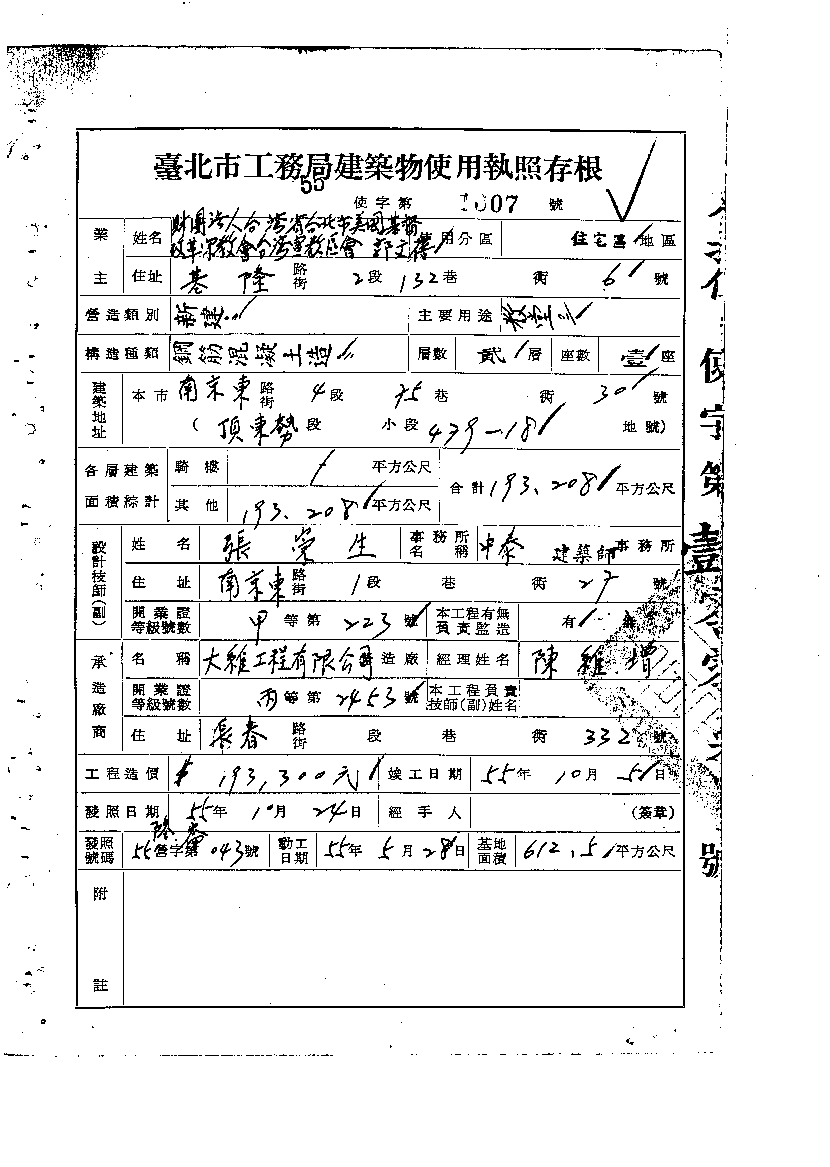 臺北市工務局建築物使用執照存根
55 使字第 1607 號
業主 姓名 財團法人台灣省台北市美國基督改革宗教會台灣宣教區會 郭文 使用分區 住宅區 地區
住址 基隆 路街 2段 132巷 衖 6 號
營造類別 新建 主要用途 教堂
構造種類 鋼筋混凝土造 層數 貳 層 座數 壹 座
建築地址 本市 南京東 路街 4段 75巷 衖 30 號
( 頂東勢 段 小段 439-18 地號)
各層建築面積綜計 騎樓 / 平方公尺 合計 193.208 平方公尺
其他 193.208 平方公尺
設計技師(副) 姓名 張榮生 事務所名稱 中泰 建築師 事務所
住址 南京東 路街 1段 巷 衖 27 號
開業證等級號數 甲 等第 223 號 本工程有無負責監造 有
承造廠商 名稱 大雅工程有限公司 造廠 經理姓名 陳雅增
開業證等級號數 丙 等第 2453 號 本工程負責技師(副)姓名
住址 長春 路街 段 巷 衖 332 號
工程造價 $ 193,300元 竣工日期 55年 10月 5日
發照日期 55年 10月 24日 經手人 (簽章)
發照號碼 55營字第 043號 動工日期 55年 5月 28日 基地面積 612.5 平方公尺
附註
使字第壹
號